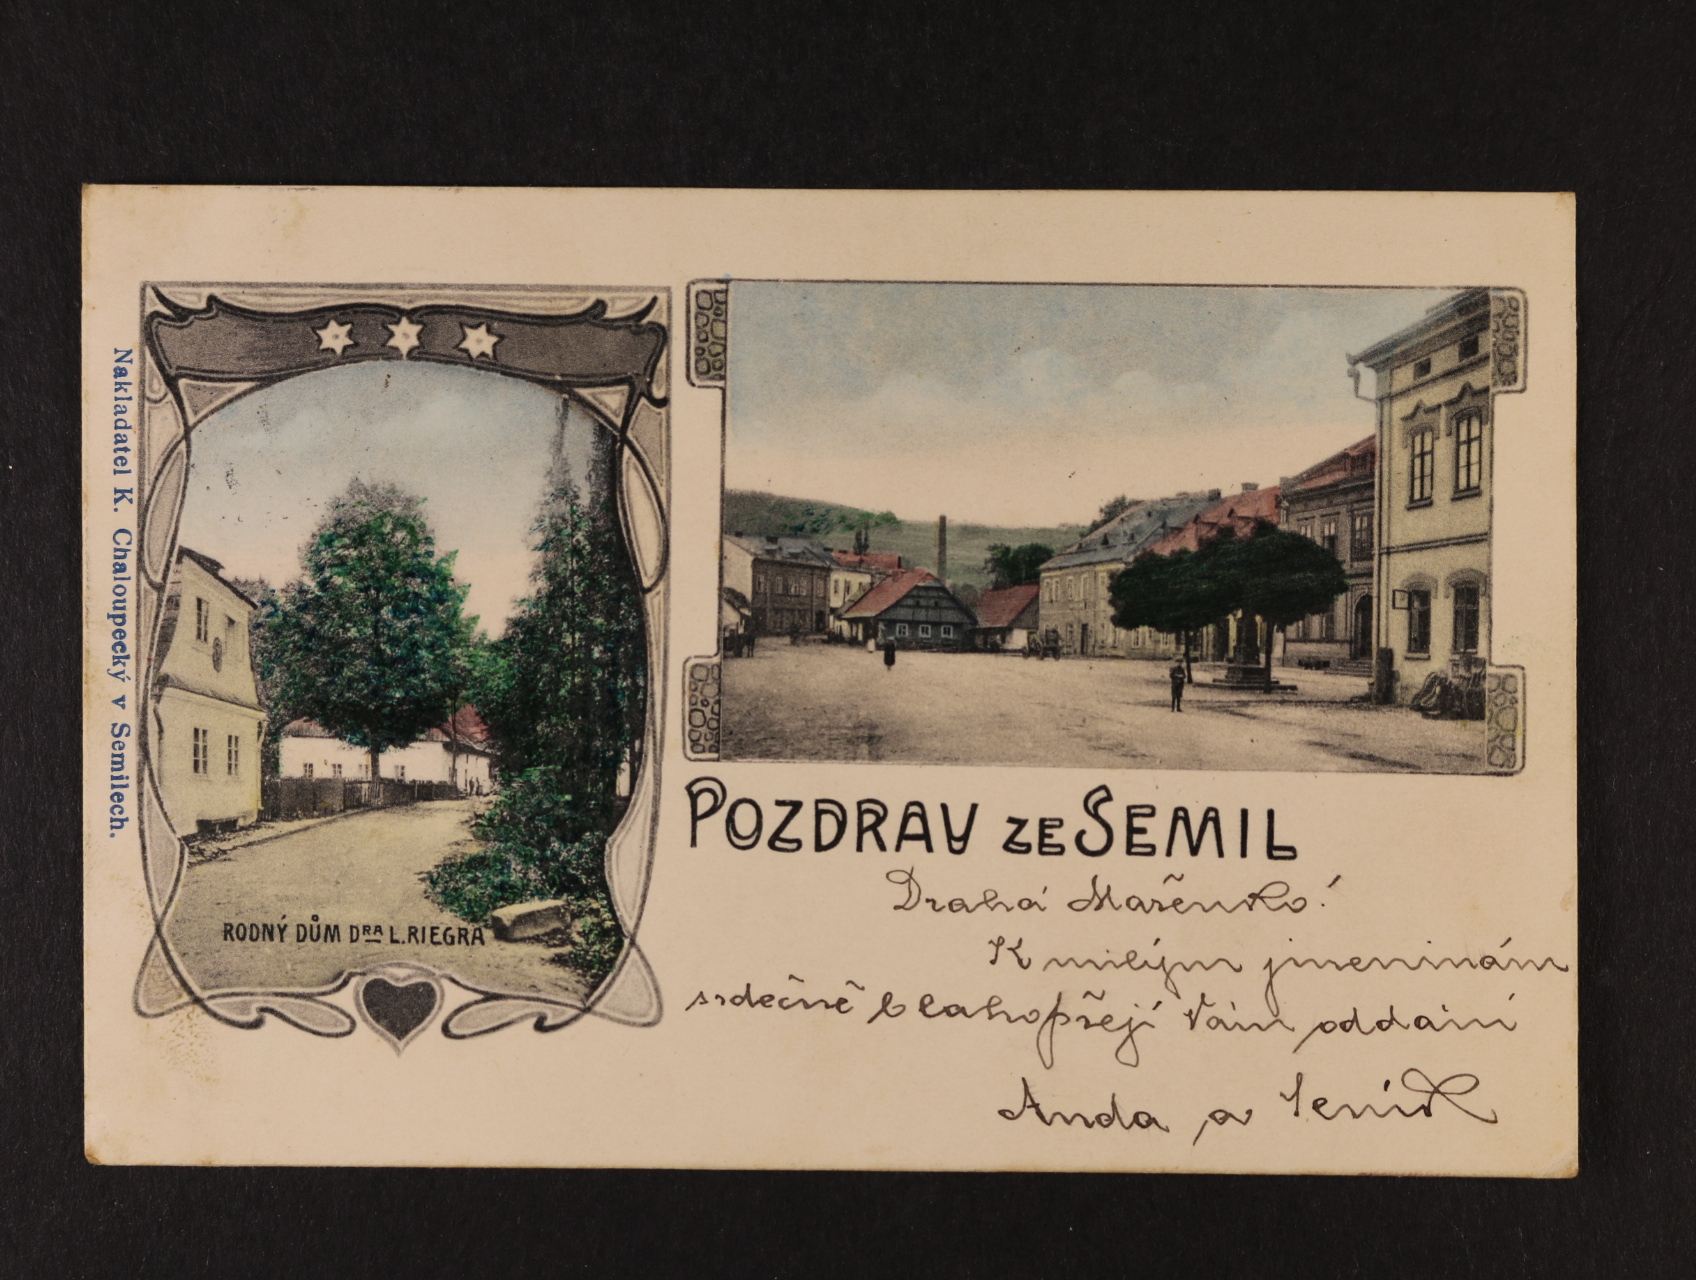 Nakladatel K. Chaloupecký v Semilech.
RODNÝ DŮM DRA L. RIEGRA
POZDRAV ZE SEMIL
Drahá Mařenko!
K milým jmeninám
srdečně blahopřejí Vám oddaní
Anda a